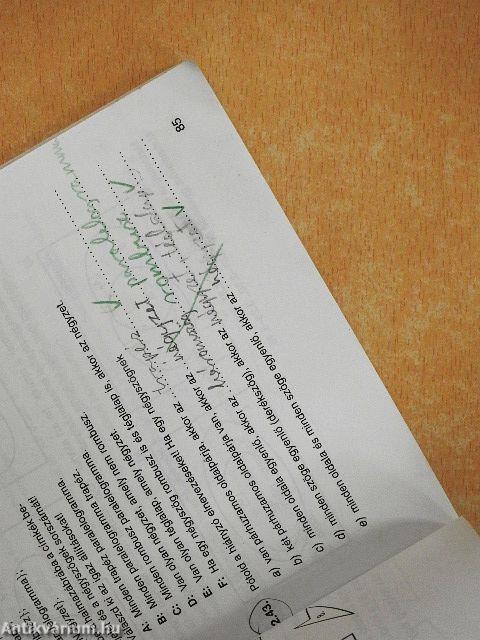 rajzet)
alógramma);
almazábrába a címkékbe-
a négyszögek sorszámát!
álaszd ki az igaz állításokat!
A: Minden trapéz paralelogramma.
B: Minden paralelogramma trapéz.
C: Minden rombusz paralelogramma
D: Van olyan négyzet, amely nem rombusz.
E: Van olyan téglalap, amely négyzet.
F: Ha egy négyszög rombusz is és téglalap is, akkor az négyzet.
2.43. Pótold a hiányzó elnevezéseket! Ha egy négyszögnek
a) van párhuzamos oldalpárja, akkor az trapéz
b) két párhuzamos oldalpárja van, akkor az négyzet paralelogramma
c) minden oldala egyenlő, akkor az rombusz
d) minden szöge egyenlő (derékszög), akkor az négyzet + téglalap
e) minden oldala és minden szöge egyenlő, akkor az
85
Antikvárium.hu